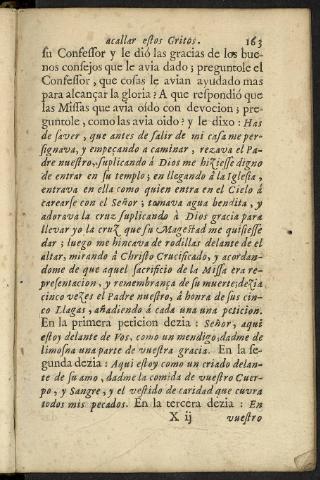 acallar estos Gritos. 163
su Confessor y le dió las gracias de los bue-
nos consejos que le avia dado; preguntole el
Confessor, que cosas le avian ayudado mas
para alcançar la gloria? A que respondió que
las Missas que avia oìdo con devocion; pre-
guntole, como las avia oìdo? y le dixo: Has
de saver, que antes de salir de mi casa me per-
signava, y empeçando a caminar, rezava el Pa-
dre nuestro, suplicando á Dios me hiziesse digno
de entrar en su templo; en llegando á la Iglesia,
entrava en ella como quien entra en el Cielo á
carearse con el Señor; tomava agua bendita, y
adorava la cruz suplicando à Dios gracia para
llevar yo la cruz que su Magestad me quisiesse
dar; luego me hincava de rodillas delante de el
altar, mirando à Christo Crucificado, y acordan-
dome de que aquel sacrificio de la Missa era re-
presentacion, y remembrança de su muerte; dezia
cinco vezes el Padre nuestro, á honra de sus cin-
co Llagas, añadiendo á cada una una peticion.
En la primera peticion dezia: Señor, aqui
estoy delante de Vos, como un mendigo, dadme de
limosna una parte de vuestra gracia. En la se-
gunda dezia: Aqui estoy como un criado delan-
te de su amo, dadme la comida de vuestro Cuer-
po, y Sangre, y el vestido de caridad que cuvra
todos mis pecados. En la tercera dezia: En
X ij vuestro